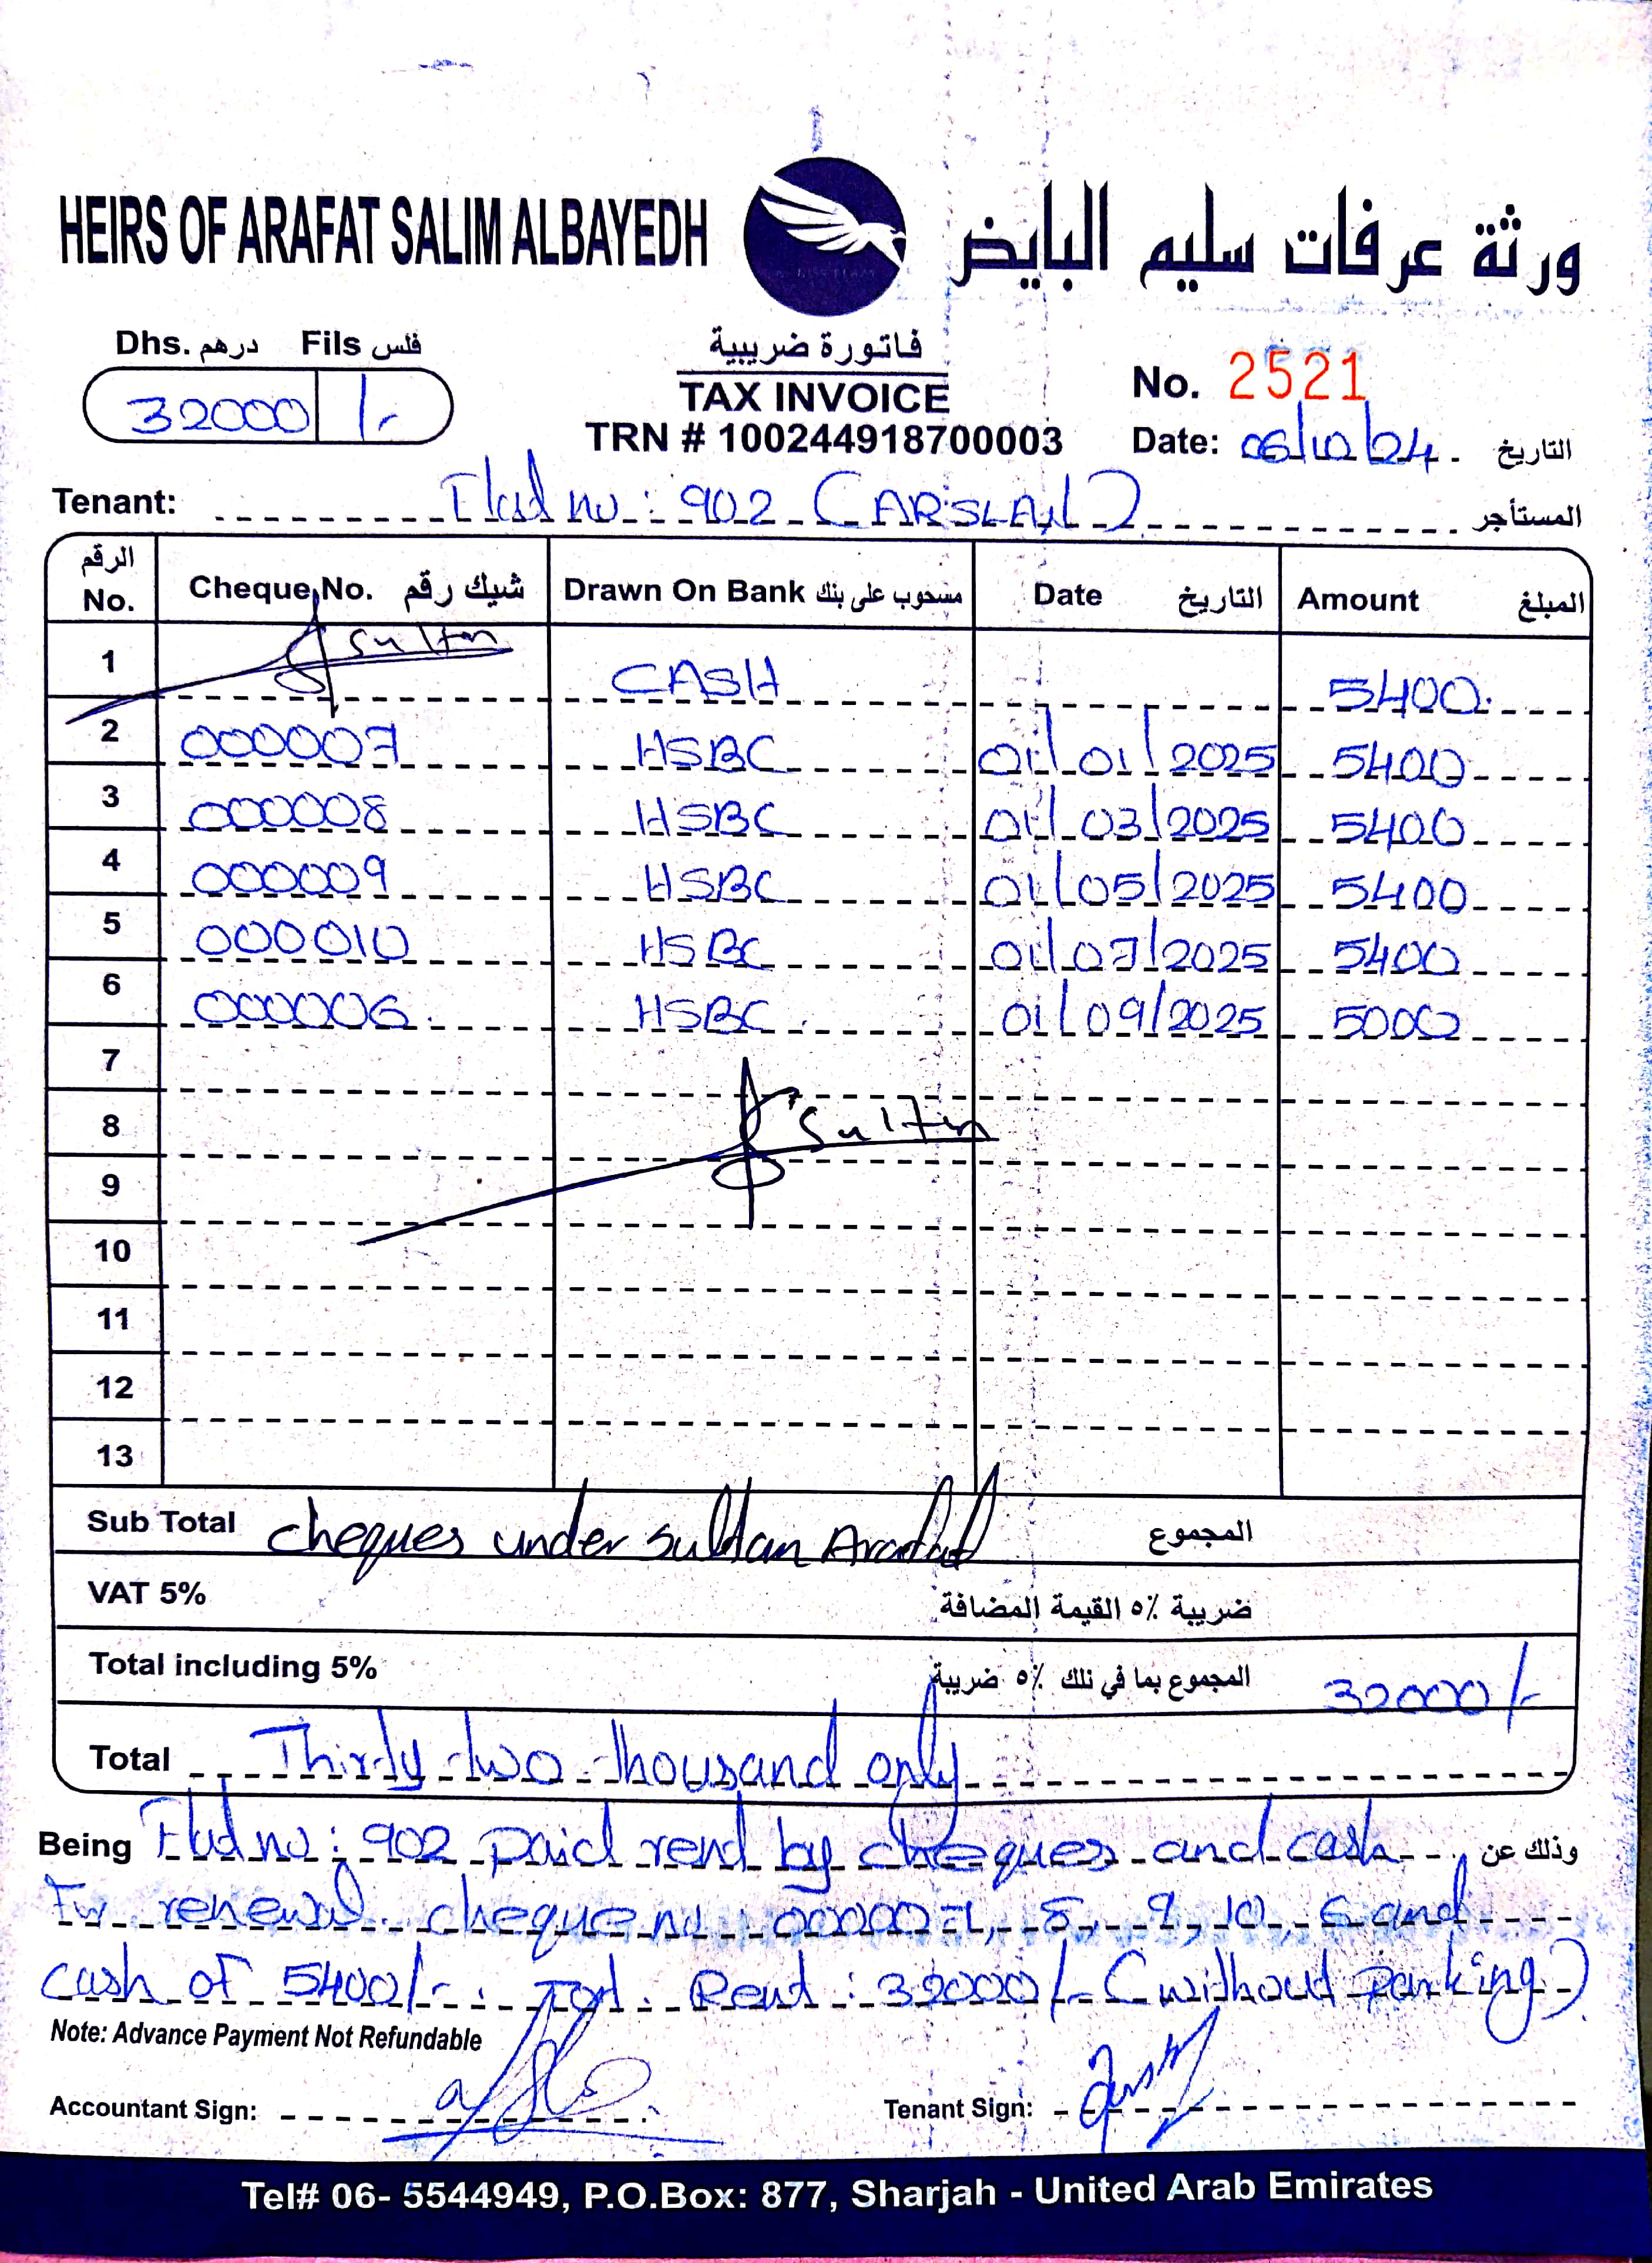 HEIRS OF ARAFAT SALIM ALBAYEDH ورثة عرفات سليم البايض
Dhs. درهم Fils فلس
32000 /-
فاتورة ضريبية
TAX INVOICE
TRN # 100244918700003
No. 2521
Date: 06/10/24. التاريخ
Tenant: Flat no: 902 (ARSLAN) المستأجر
الرقم No. Cheque No. شيك رقم Drawn On Bank مسحوب على بنك Date التاريخ Amount المبلغ
1 Sultan CASH 5400.
2 000007 HSBC 01/01/2025 5400
3 000008 HSBC 01/03/2025 5400
4 000009 HSBC 01/05/2025 5400
5 000010 HSBC 01/07/2025 5400
6 000006. HSBC. 01/09/2025 5000
7
8 Sultan
9
10
11
12
13
Sub Total cheques under Sultan Arafat المجموع
VAT 5% ضريبة ٥٪ القيمة المضافة
Total including 5% المجموع بما في ذلك ٥٪ ضريبة 32000/-
Total Thirty two thousand only
Being Flat no: 902 paid rent by cheques and cash وذلك عن
For renewal cheque no: 000007, 8, 9, 10, 6 and
cash of 5400/-. Rent: 32000/- (without parking)
Note: Advance Payment Not Refundable
Accountant Sign: Tenant Sign:
Tel# 06- 5544949, P.O.Box: 877, Sharjah - United Arab Emirates